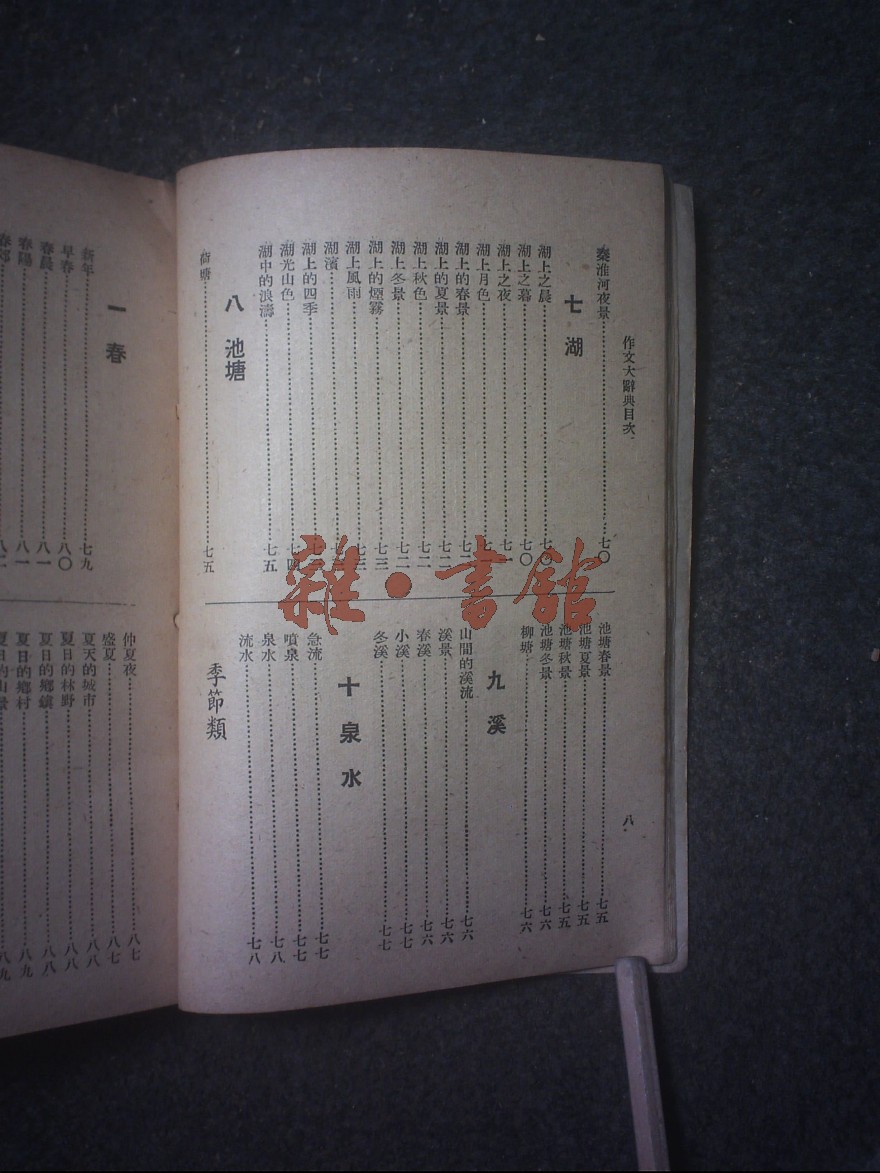 作文大辭典目次
八
秦淮河夜景……七〇
七 湖
湖上之晨……七〇
湖上之暮……七〇
湖上之夜……七一
湖上月色
湖上的春景……七二
湖上的夏景……七二
湖上秋色……七二
湖上冬景……七二
湖上的煙霧……七三
湖上風雨……七三
湖濱
湖上的四季
湖光山色……七四
湖中的浪濤……七五
八 池塘
荷塘……七五
池塘春景……七五
池塘夏景……七五
池塘秋景……七五
池塘冬景……七六
柳塘……七六
九 溪
山間的溪流……七六
溪景……七六
春溪……七六
小溪……七七
冬溪……七七
十 泉水
急流……七七
噴泉……七七
泉水……七八
流水……七八
季節類
一 春
新年……七九
早春……八〇
春晨……八一
春陽……八一
春郊……八二
仲夏夜……八七
盛夏……八七
夏天的城市……八八
夏日的林野……八八
夏日的鄉鎮……八八
夏日的鄉村……八九
夏日的山景……八九
雜·書館